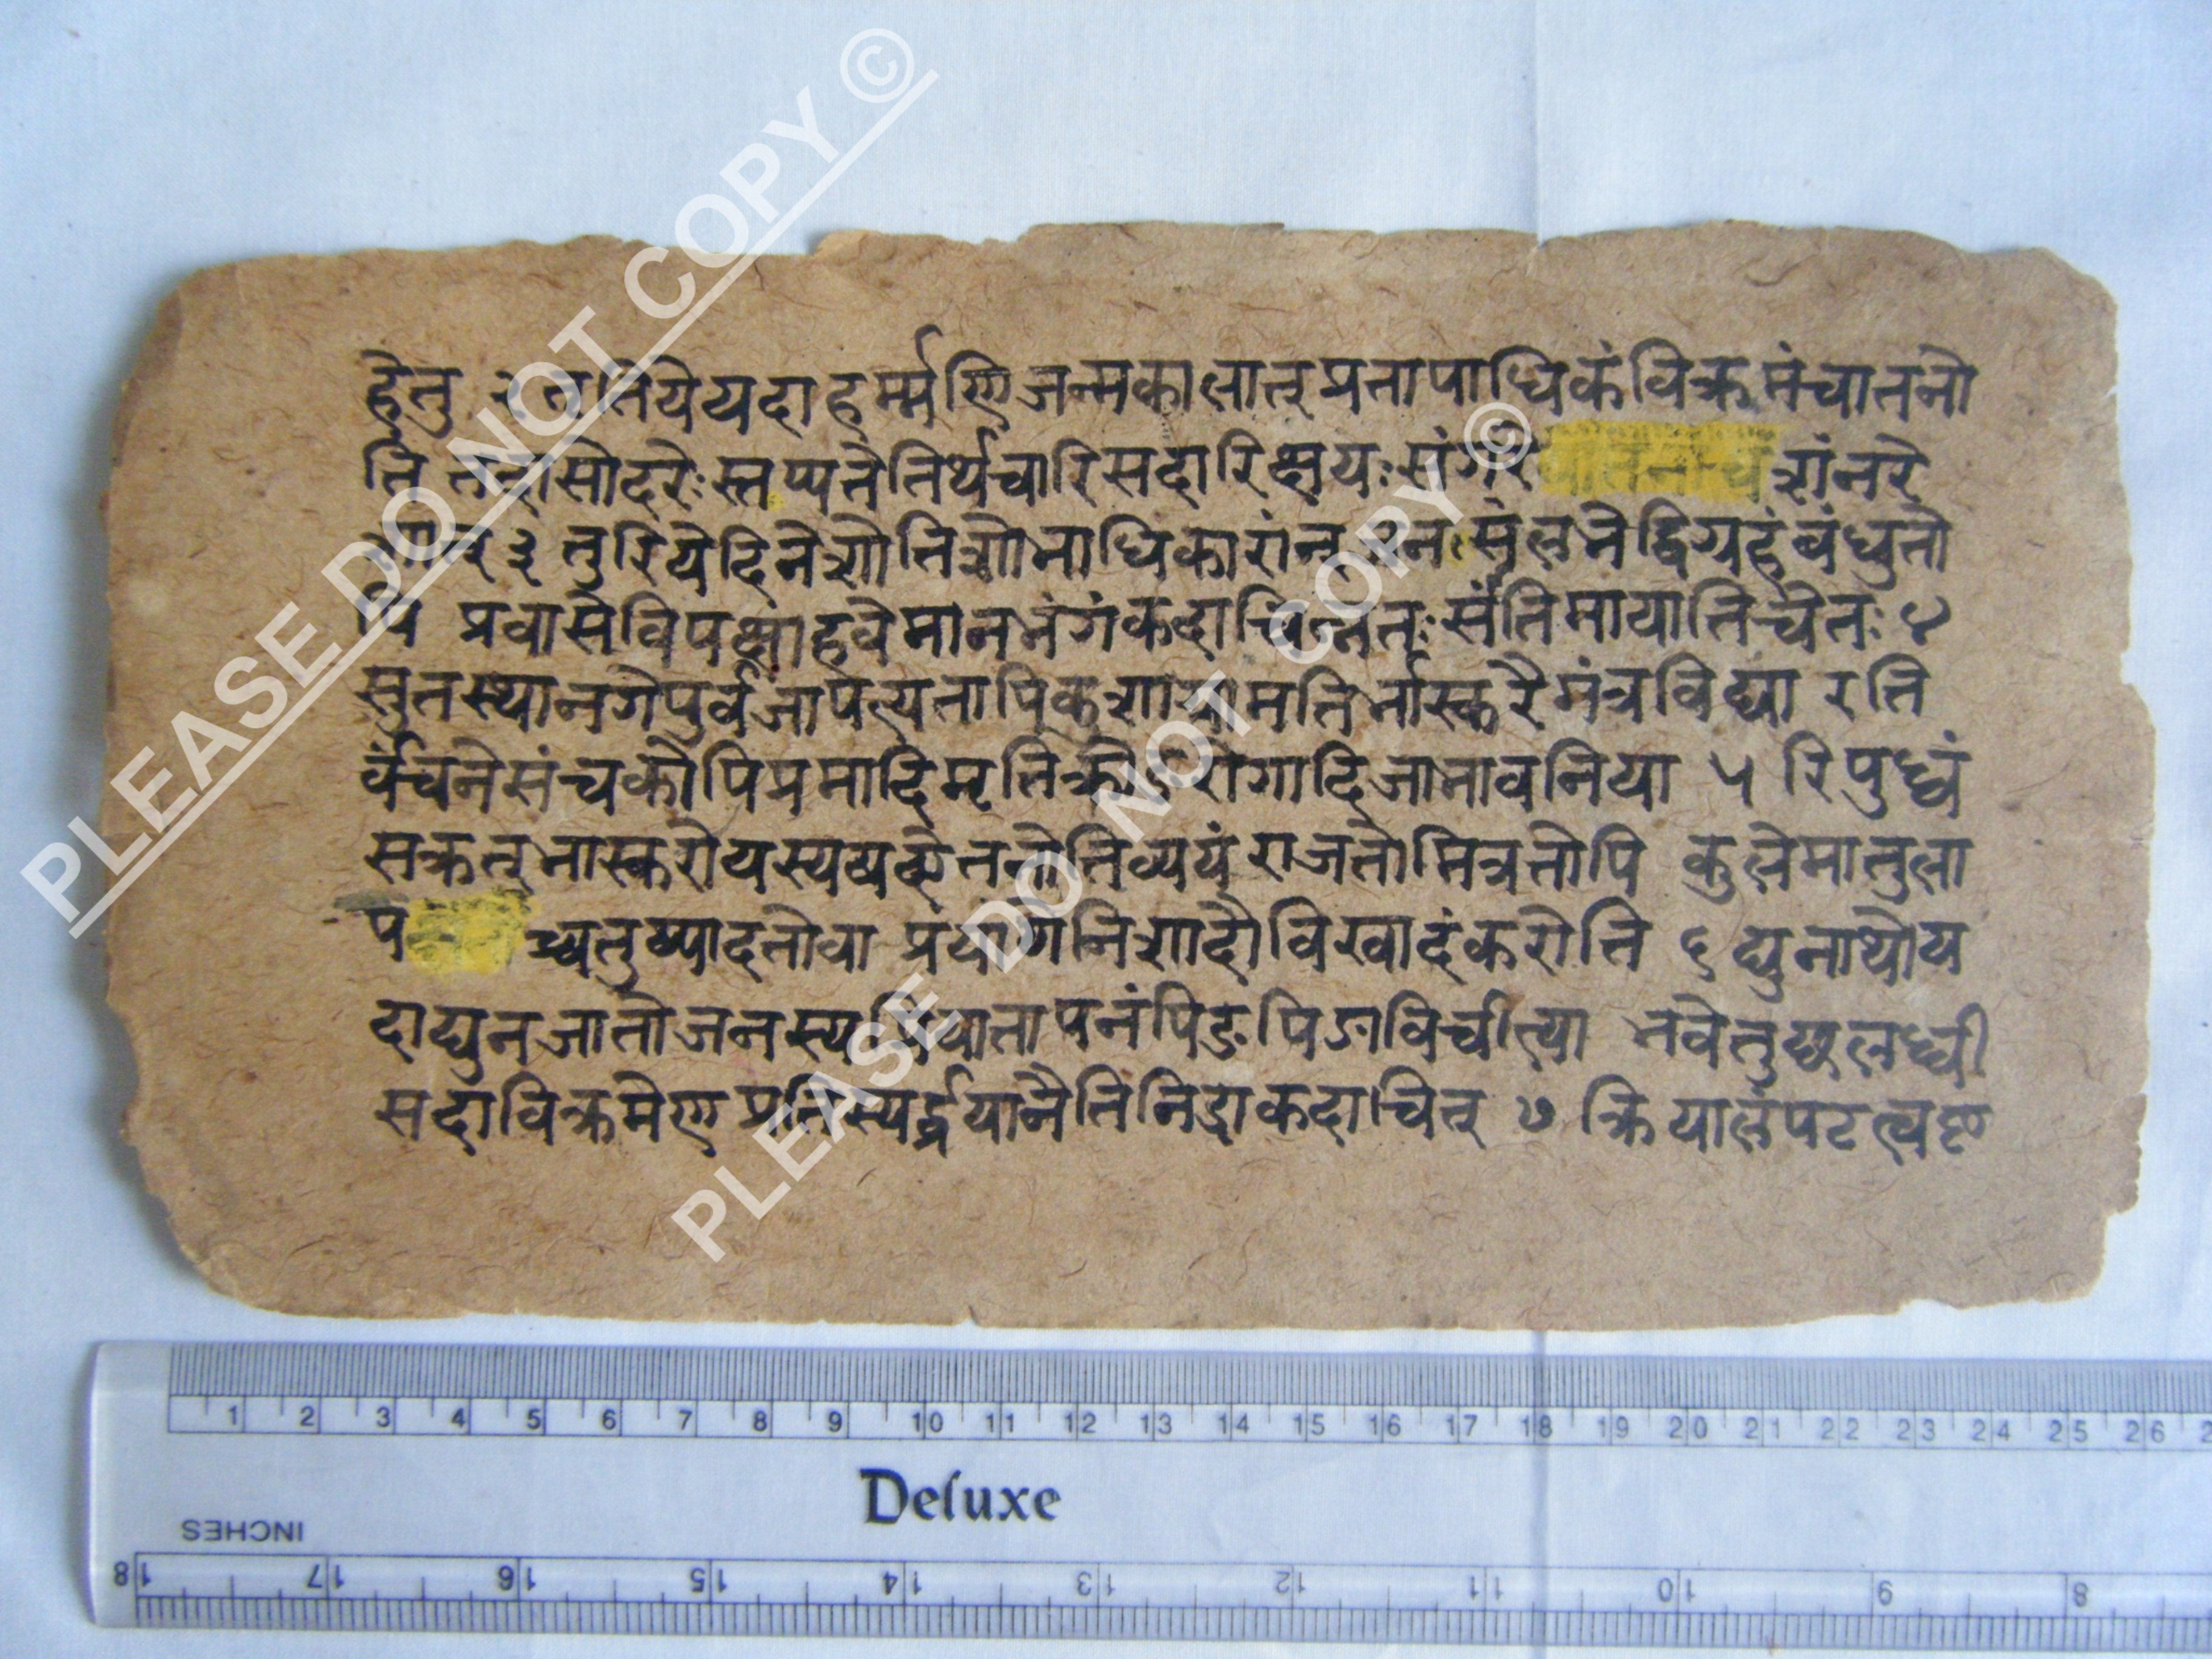 हेतु २ तृतियेयदाहर्म्मणिजन्मकालात्प्रतापाधिकंविक्रमंचातनो
ति तदासोदरेःस्तप्यतेतिर्थचारिसदारिक्षयःसंगरे शंनरे
३ तुरियेदिनेशोतिशोभाधिकारांन् जनःसंलभेद्विग्रहंबंधुतो
पि प्रवासेविपक्षाहवेमानभंगंकदाचिन्नतःसंतिमायातिचेतः ४
सुतस्थानगेपुर्वजापत्यतापिकुशाग्रामतिर्भास्करेमंत्रविद्या रति
र्वंचनेसंचकोपिप्रमादिमृतिक्रोडरोगादिजाभावनिया ५ रिपुध्वं
सकृत्भास्करोयस्यषष्ठेतनोतिव्ययंराजतोमित्रतोपि कुलेमातुला
प च्चतुष्पादतोवा प्रयाणेनिशादैविखादंकरोति ६ द्युनाथोय
दाद्युनजातोजनस्यप्रियातापनंपिङपिङाविचीत्या भवेतुछलध्वी
सदाविक्रमेण प्रतिस्पर्द्धयानैतिनिद्राकदाचित् ७ क्रियालंपटत्व
PLEASE DO NOT COPY ©
PLEASE DO NOT COPY ©
1 2 3 4 5 6 7 8 9 10 11 12 13 14 15 16 17 18 19 20 21 22 23 24 25 26
Deluxe
INCHES
18 17 16 15 14 13 12 11 10 9 8